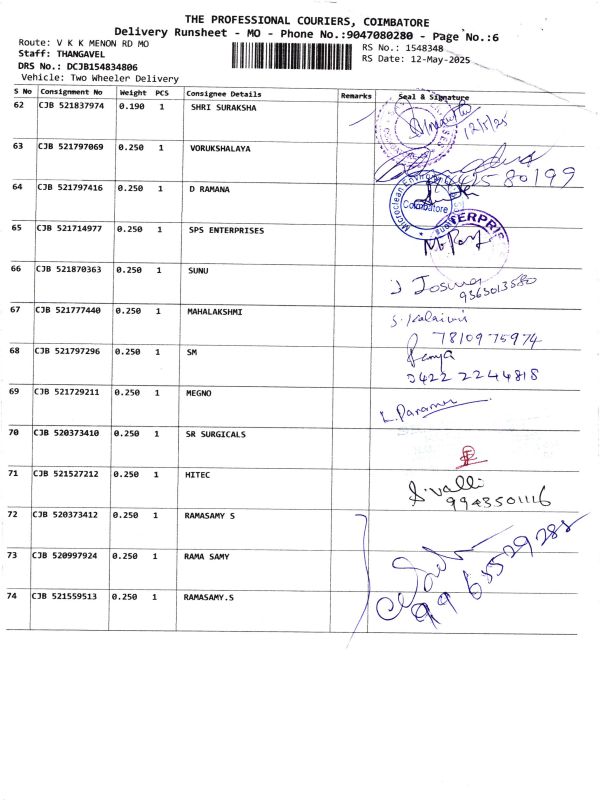 THE PROFESSIONAL COURIERS, COIMBATORE
Delivery Runsheet - MO - Phone No.:9047080280 - Page No.:6
Route: V K K MENON RD MO
RS No.: 1548348
Staff: THANGAVEL
RS Date: 12-May-2025
DRS No.: DCJB154834806
Vehicle: Two Wheeler Delivery
S No Consignment No Weight PCS Consignee Details Remarks Seal & Signature
62 CJB 521837974 0.190 1 SHRI SURAKSHA
12/5/25
63 CJB 521797069 0.250 1 VORUKSHALAYA
64 CJB 521797416 0.250 1 D RAMANA
Microclean Environ
Coimbatore
65 CJB 521714977 0.250 1 SPS ENTERPRISES
66 CJB 521870363 0.250 1 SUNU
9363013580
67 CJB 521777440 0.250 1 MAHALAKSHMI
S. Kalaivi
7810975974
68 CJB 521797296 0.250 1 SM
Ramya
0422 2244818
69 CJB 521729211 0.250 1 MEGNO
70 CJB 520373410 0.250 1 SR SURGICALS
71 CJB 521527212 0.250 1 HITEC
S. valli
9943501116
72 CJB 520373412 0.250 1 RAMASAMY S
73 CJB 520997924 0.250 1 RAMA SAMY
9965529285
74 CJB 521559513 0.250 1 RAMASAMY.S